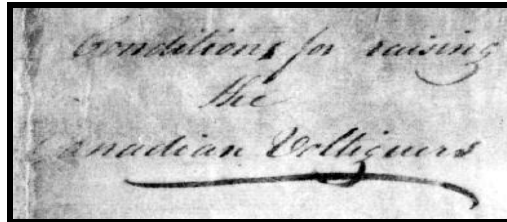 Conditions for raising
the
Canadian Voltigeurs